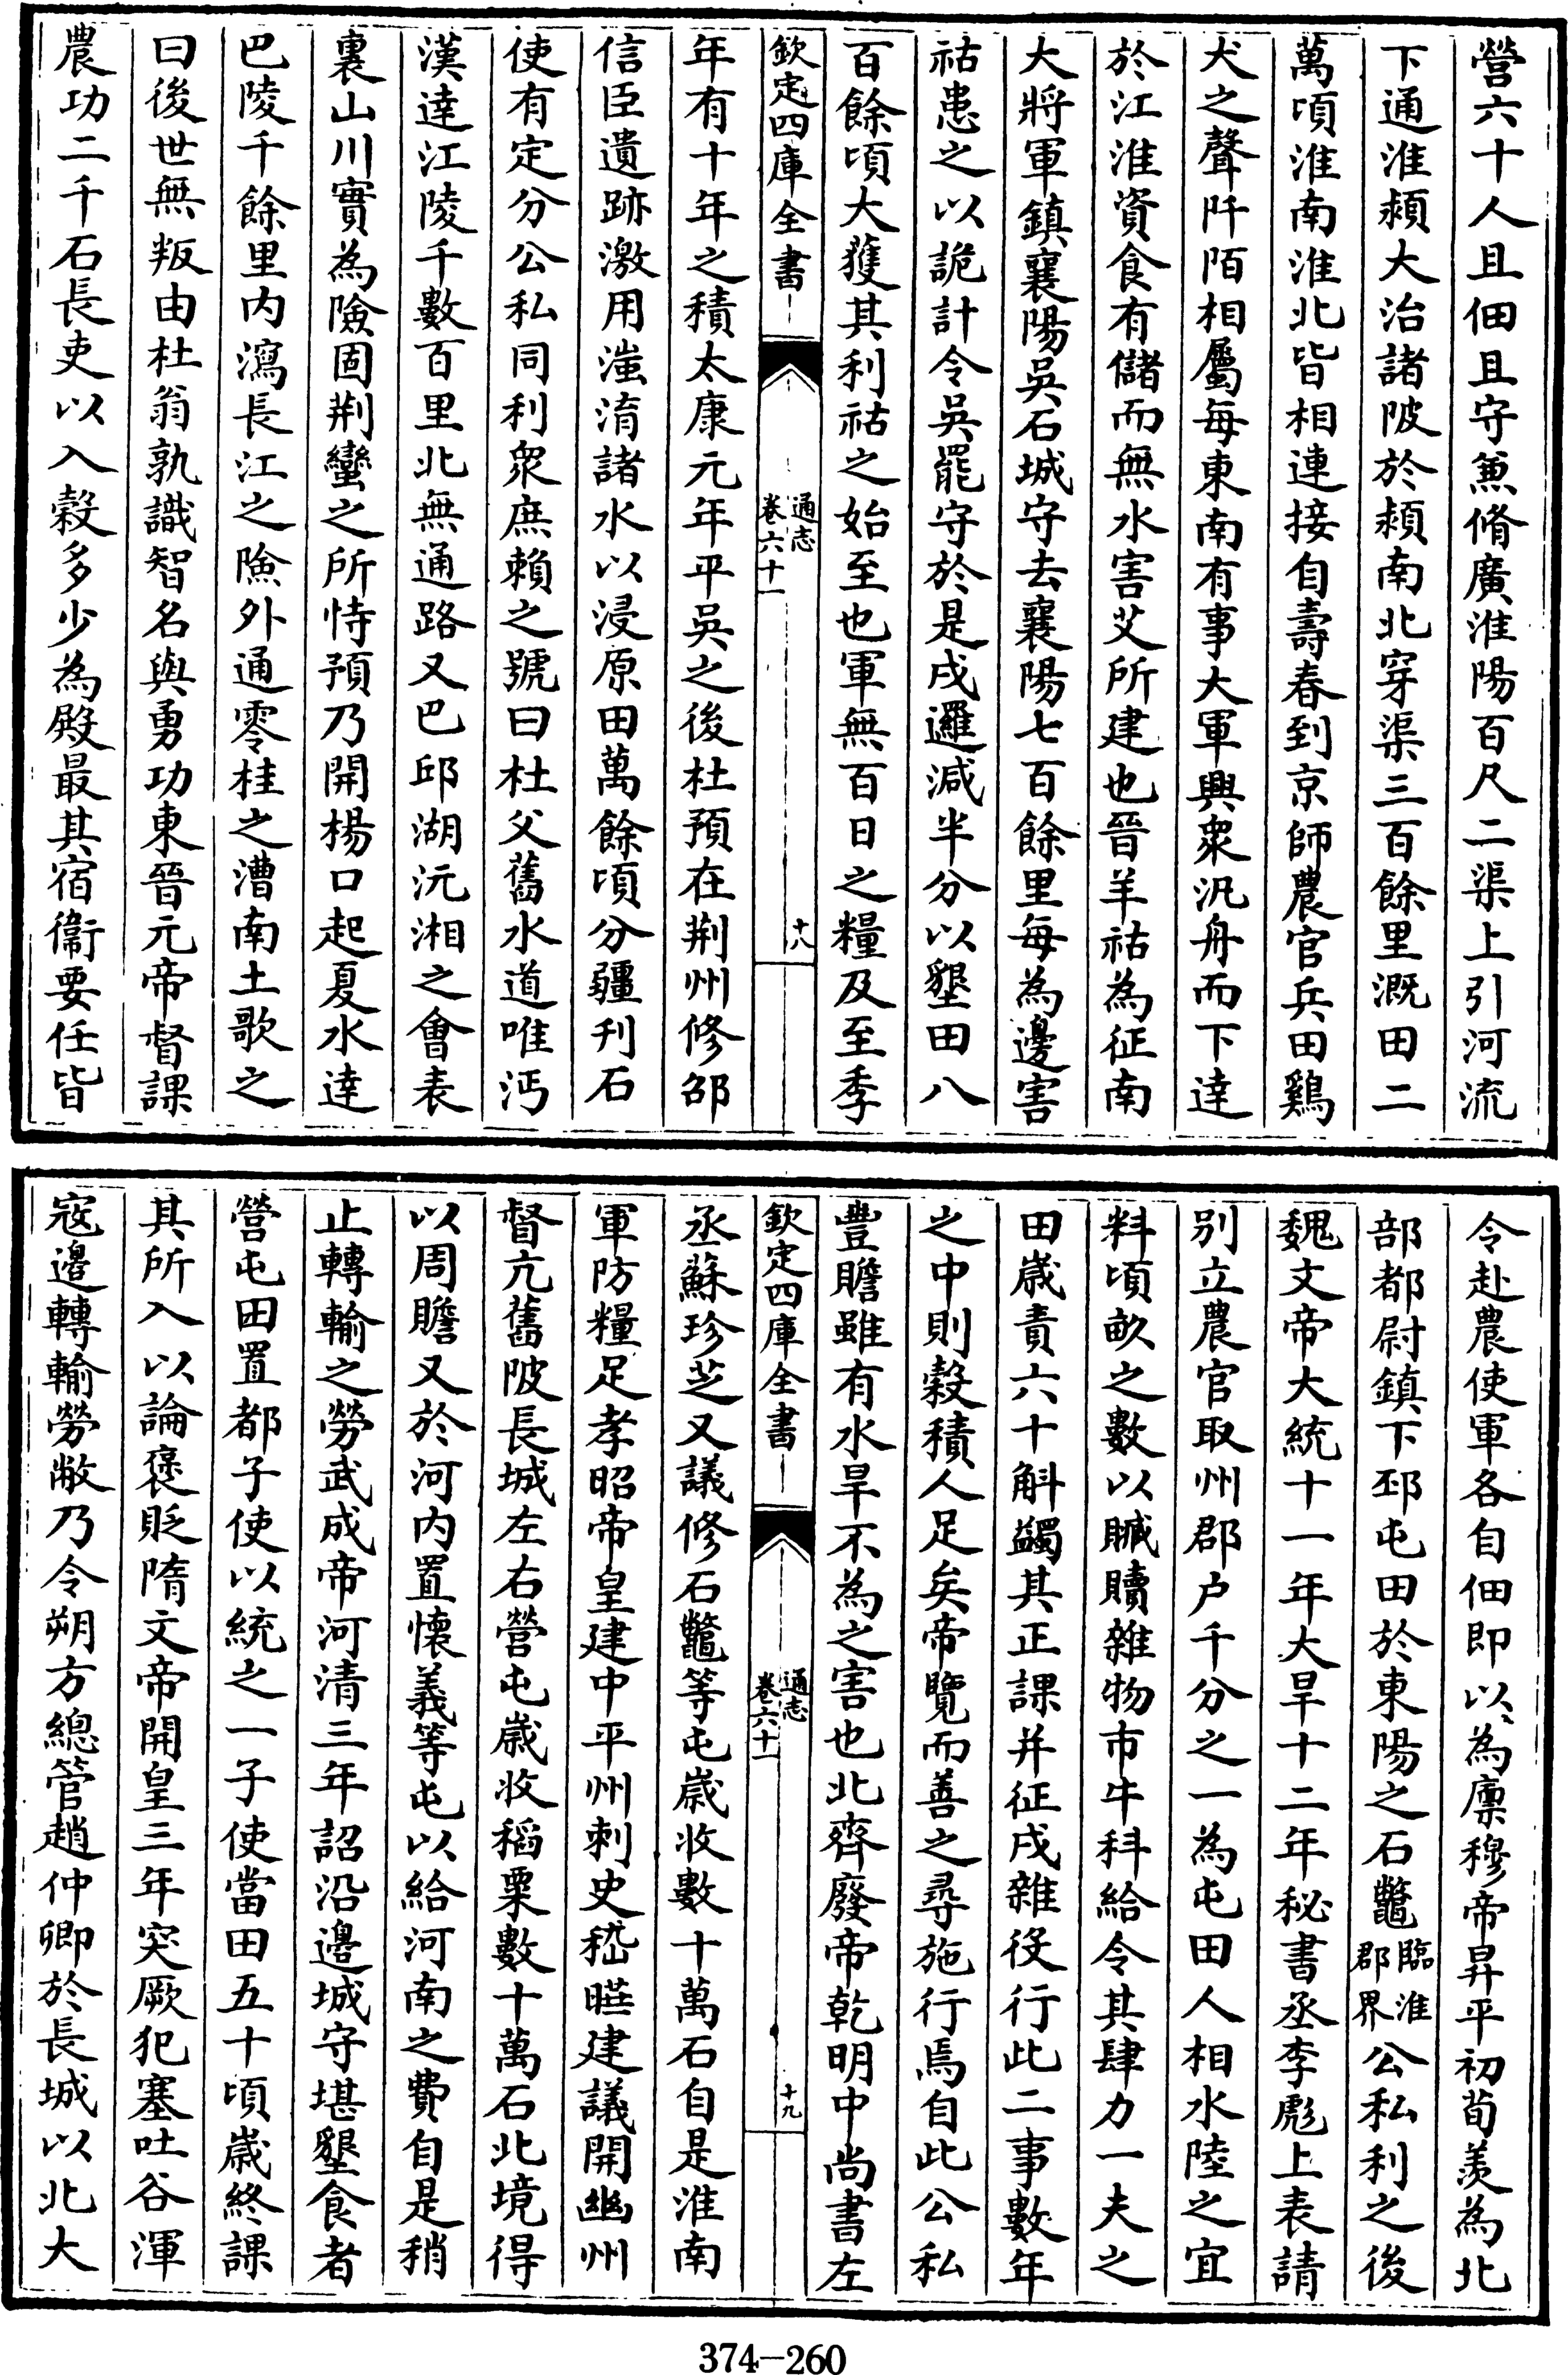 營六十人且佃且守兼脩廣淮陽百尺二渠上引河流
下通淮潁大治諸陂於潁南北穿渠三百餘里溉田二
萬頃淮南淮北皆相連接自壽春到京師農官兵田鷄
犬之聲阡陌相屬每東南有事大軍興衆汎舟而下達
於江淮資食有儲而無水害艾所建也晉羊祜為征南
大將軍鎮襄陽吳石城守去襄陽七百餘里每為邊害
祜患之以詭計令吳罷守於是戍邏減半分以墾田八
百餘頃大獲其利祜之始至也軍無百日之糧及至季
欽定四庫全書
通志
卷六十一
十八
年有十年之積太康元年平吳之後杜預在荆州修邵
信臣遺跡激用滍淯諸水以浸原田萬餘頃分疆刋石
使有定分公私同利衆庶賴之號曰杜父舊水道唯沔
漢達江陵千數百里北無通路又巴邱湖沅湘之會表
裏山川實為險固荆蠻之所恃預乃開楊口起夏水達
巴陵千餘里内瀉長江之險外通零桂之漕南土歌之
曰後世無叛由杜翁孰識智名與勇功東晉元帝督課
農功二千石長吏以入穀多少為殿最其宿衞要任皆
令赴農使軍各自佃即以為廩穆帝昇平初荀羨為北
部都尉鎮下邳屯田於東陽之石鼈臨淮郡界公私利之後
魏文帝大統十一年大旱十二年秘書丞李彪上表請
别立農官取州郡户千分之一為屯田人相水陸之宜
料頃畝之數以贓贖雜物市牛科給令其肆力一夫之
田歲責六十斛蠲其正課并征戍雜役行此二事數年
之中則穀積人足矣帝覽而善之尋施行焉自此公私
豐贍雖有水旱不為之害也北齊廢帝乾明中尚書左
欽定四庫全書
通志
卷六十一
十九
丞蘇珍芝又議修石鼈等屯歲收數十萬石自是淮南
軍防糧足孝昭帝皇建中平州刺史嵇曄建議開幽州
督亢舊陂長城左右營屯歲收稻粟數十萬石北境得
以周贍又於河内置懷義等屯以給河南之費自是稍
止轉輸之勞武成帝河清三年詔沿邉城守堪墾食者
營屯田置都子使以統之一子使當田五十頃歲終課
其所入以論褒貶隋文帝開皇三年突厥犯塞吐谷渾
寇邉轉輸勞敝乃令朔方總管趙仲卿於長城以北大
374-260